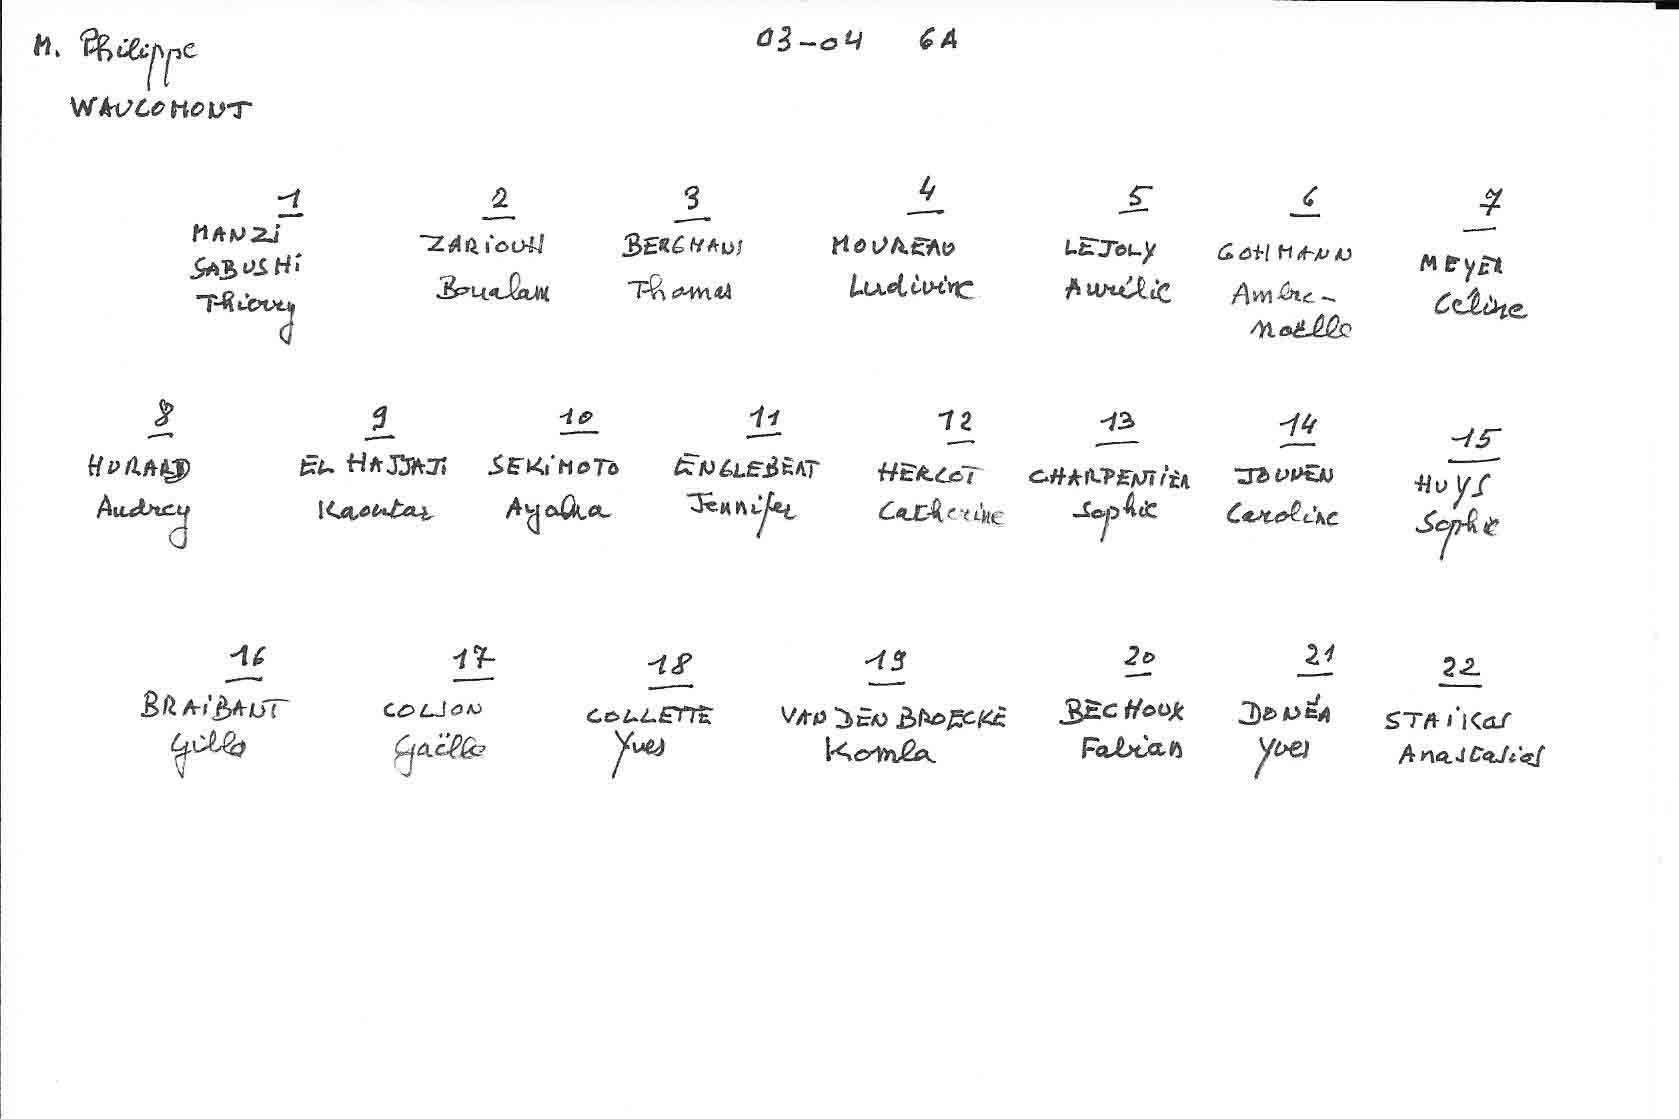 M. Philippe 03-04 6A
WAUCOMONT
1 2 3 4 5 6 7
MANZI ZARIOUH BERGHMANS MOUREAU LEJOLY GOHIMANN MEYER
SABUSHI Boualam Thomas Ludivine Aurélie Ambre- Céline
Thierry Noëlle
8 9 10 11 12 13 14 15
HURARD EL HAJJAJI SEKIMOTO ENGLEBERT HERLOT CHARPENTIER JOUVEN HUYS
Audrey Kaoutar Ayaka Jennifer Catherine Sophie Caroline Sophie
16 17 18 19 20 21 22
BRAIBANT COLSON COLLETTE VAN DEN BROECKE BECHOUX DONÉA STAIKOS
Gilles Gaëlle Yves Komla Fabian Yves Anastasios